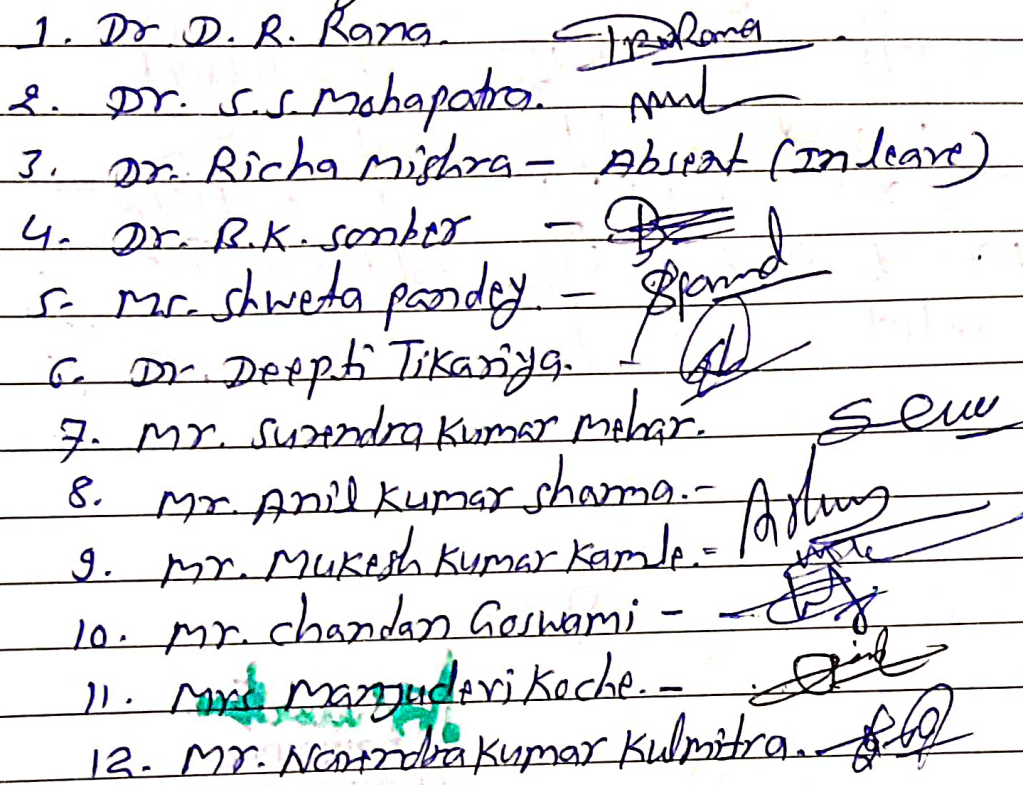 1. Dr. D. R. Rana. DRRana
2. Dr. S.S. Mohapatra.
3. Dr. Richa Mishra - Absent (In leave)
4. Dr. B.K. Sonber -
5. Ms. Shweta Pandey. -
6. Dr. Deepti Tikariya.
7. Mr. Surendra Kumar Mehar.
8. Mr. Anil Kumar Sharma. -
9. Mr. Mukesh Kumar Kamle. -
10. Mr. Chandan Goswami -
11. Mrs Manjudevi Koche. -
12. Mr. Narendra Kumar Kulmitra.